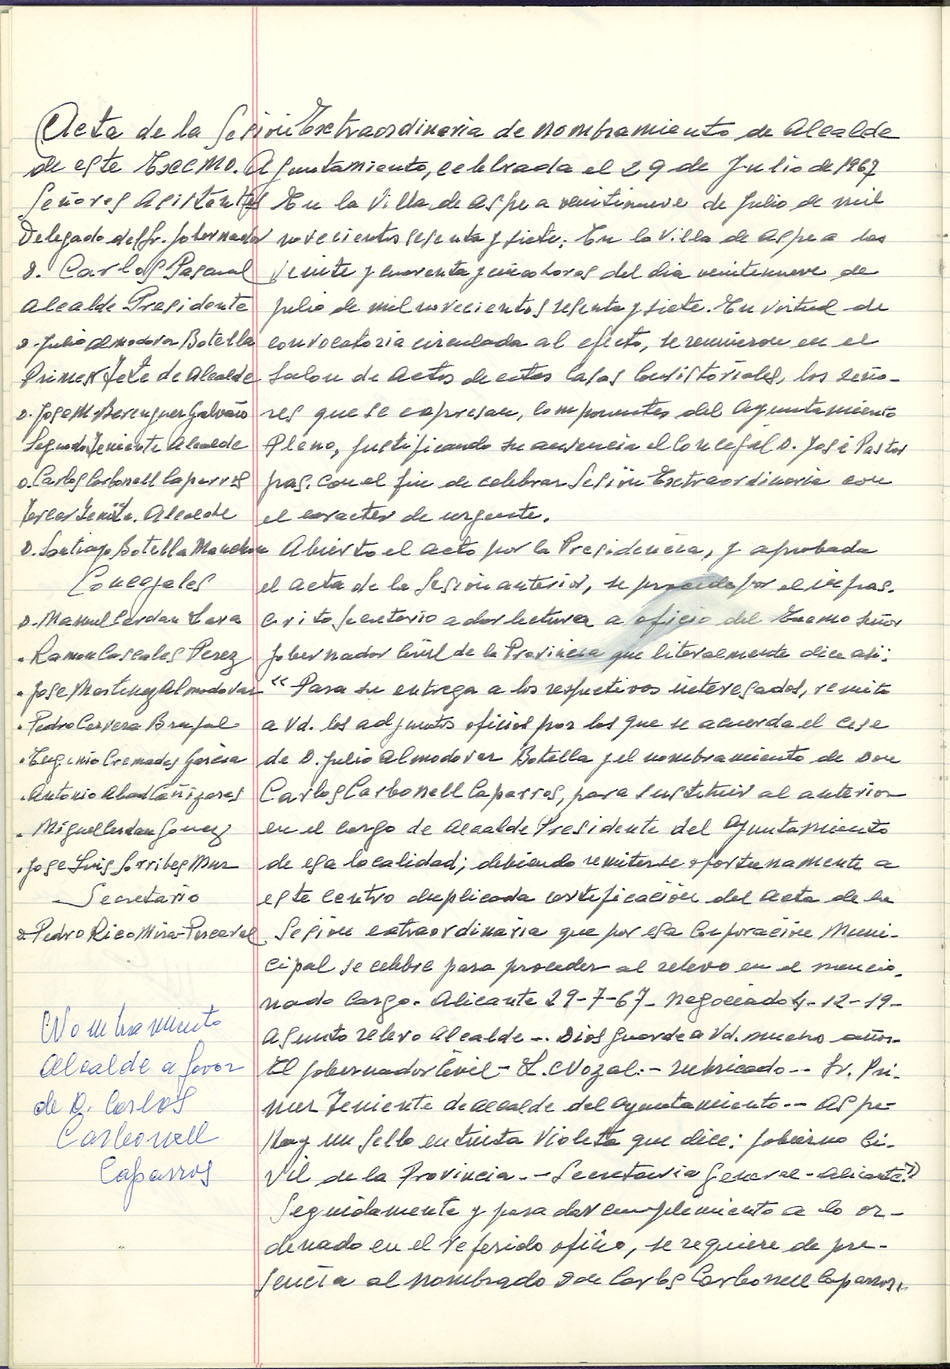 Acta de la Sesion Extraordinaria de nombramiento de Alcalde
de este Excmo. Ayuntamiento, celebrada el 29 de Julio de 1967
Señores Asistentes
Delegado del Sr. Gobernador
D. Carlos Pascual
Alcalde Presidente
D. Julio Almodovar Botella
Primer Tete de Alcalde
D. Jose Mª Berenguer Galvañ
Segundo Teniente Alcalde
D. Carlos Carbonell Caparros
Tercer Tenite. Alcalde
D. Santiago Botella Manchon
Concejales
D. Manuel Cerdan Lara
" Ramon Cascales Perez
" Jose Martinez Almodovar
" Pedro Cervera Brufal
" Eugenio Cremades Garcia
" Antonio Abad Cañizares
" Miguel Cerdan Gomez
" Jose Luis Sorribes Mur
Secretario
D. Pedro Rico Mira-Perceval
Nombramiento
Alcalde a favor
de D. Carlos
Carbonell
Caparros
En la Villa de Aspe a veintinueve de Julio de mil
novecientos sesenta y siete. En la Villa de Aspe a las
veinte y cuarenta y cinco horas del dia veintenueve de
julio de mil novecientos sesenta y siete. En virtud de
convocatoria circulada al efecto, se reunieron en el
Salon de Actos de estas Casas Consistoriales, los seño-
res que se expresan, componentes del Ayuntamiento
Pleno, justificando su ausencia el Concejal D. José Pastor
Pras. con el fin de celebrar Sesión Extraordinaria con
el caracter de urgente.
Abierto el acto por la Presidencia, y aprobada
el acta de la Sesion anterior, se procede por el infras.
crito Secretario a dar lectura a oficio del Excmo señor
Gobernador Civil de la Provincia que literalmente dice asi:
"Para su entrega a los respectivos interesados, remito
a Vd. los adjuntos oficios por los que se acuerda el cese
de D. Julio Almodovar Botella y el nombramiento de Don
Carlos Carbonell Caparros, para sustituir al anterior
en el cargo de Alcalde Presidente del Ayuntamiento
de esa localidad; debiendo remiterse oportunamente a
este centro duplicada certificación del acta de la
Sesión extraordinaria que por esa Corporación Muni-
cipal se celebre para proceder al relevo en el mencio.
nado cargo. Alicante 29-7-67- Negociado 4-12-19-
Asunto relevo Alcalde -. Dios guarde a Vd. muchos años-
El Gobernador Civil - L. Nozal.- rubricado -- Sr. Pri-
mer Teniente de Alcalde del Ayuntamiento -- Aspe-
Hay un sello en tinta Violeta que dice: Gobierno Ci-
vil de la Provincia. - Secretaria General - Alicante."
Seguidamente y para dar cumplemiento a lo or-
denado en el referido oficio, se requiere de pre-
sencia al nombrado Don Carlos Carbonell Caparros,